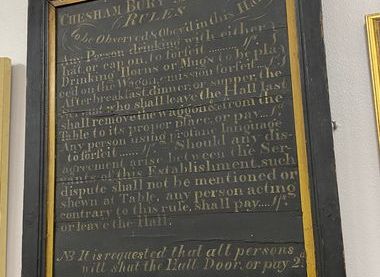 CHESHAM BURY
RULES
to be Observed & Obey'd in this Hall
Any Person drinking with either
hat or cap on, to forfeit
Drinking Horns or Mugs to be pla
ced on the Waggon, omission forfeit
After breakfast, dinner, or supper, the
Servant who shall leave the Hall last
shall remove the waggon & from the
Table to its proper place, or pay
Any person using profane language
to forfeit ........ Should any dis-
agreement arise between the Ser-
vants of this Establishment, such
dispute shall not be mentioned or
shewn at Table, any person acting
contrary to this rule, shall pay
or leave the Hall.
NB It is requested that all persons
will shut the Hall Door, or pay 2d